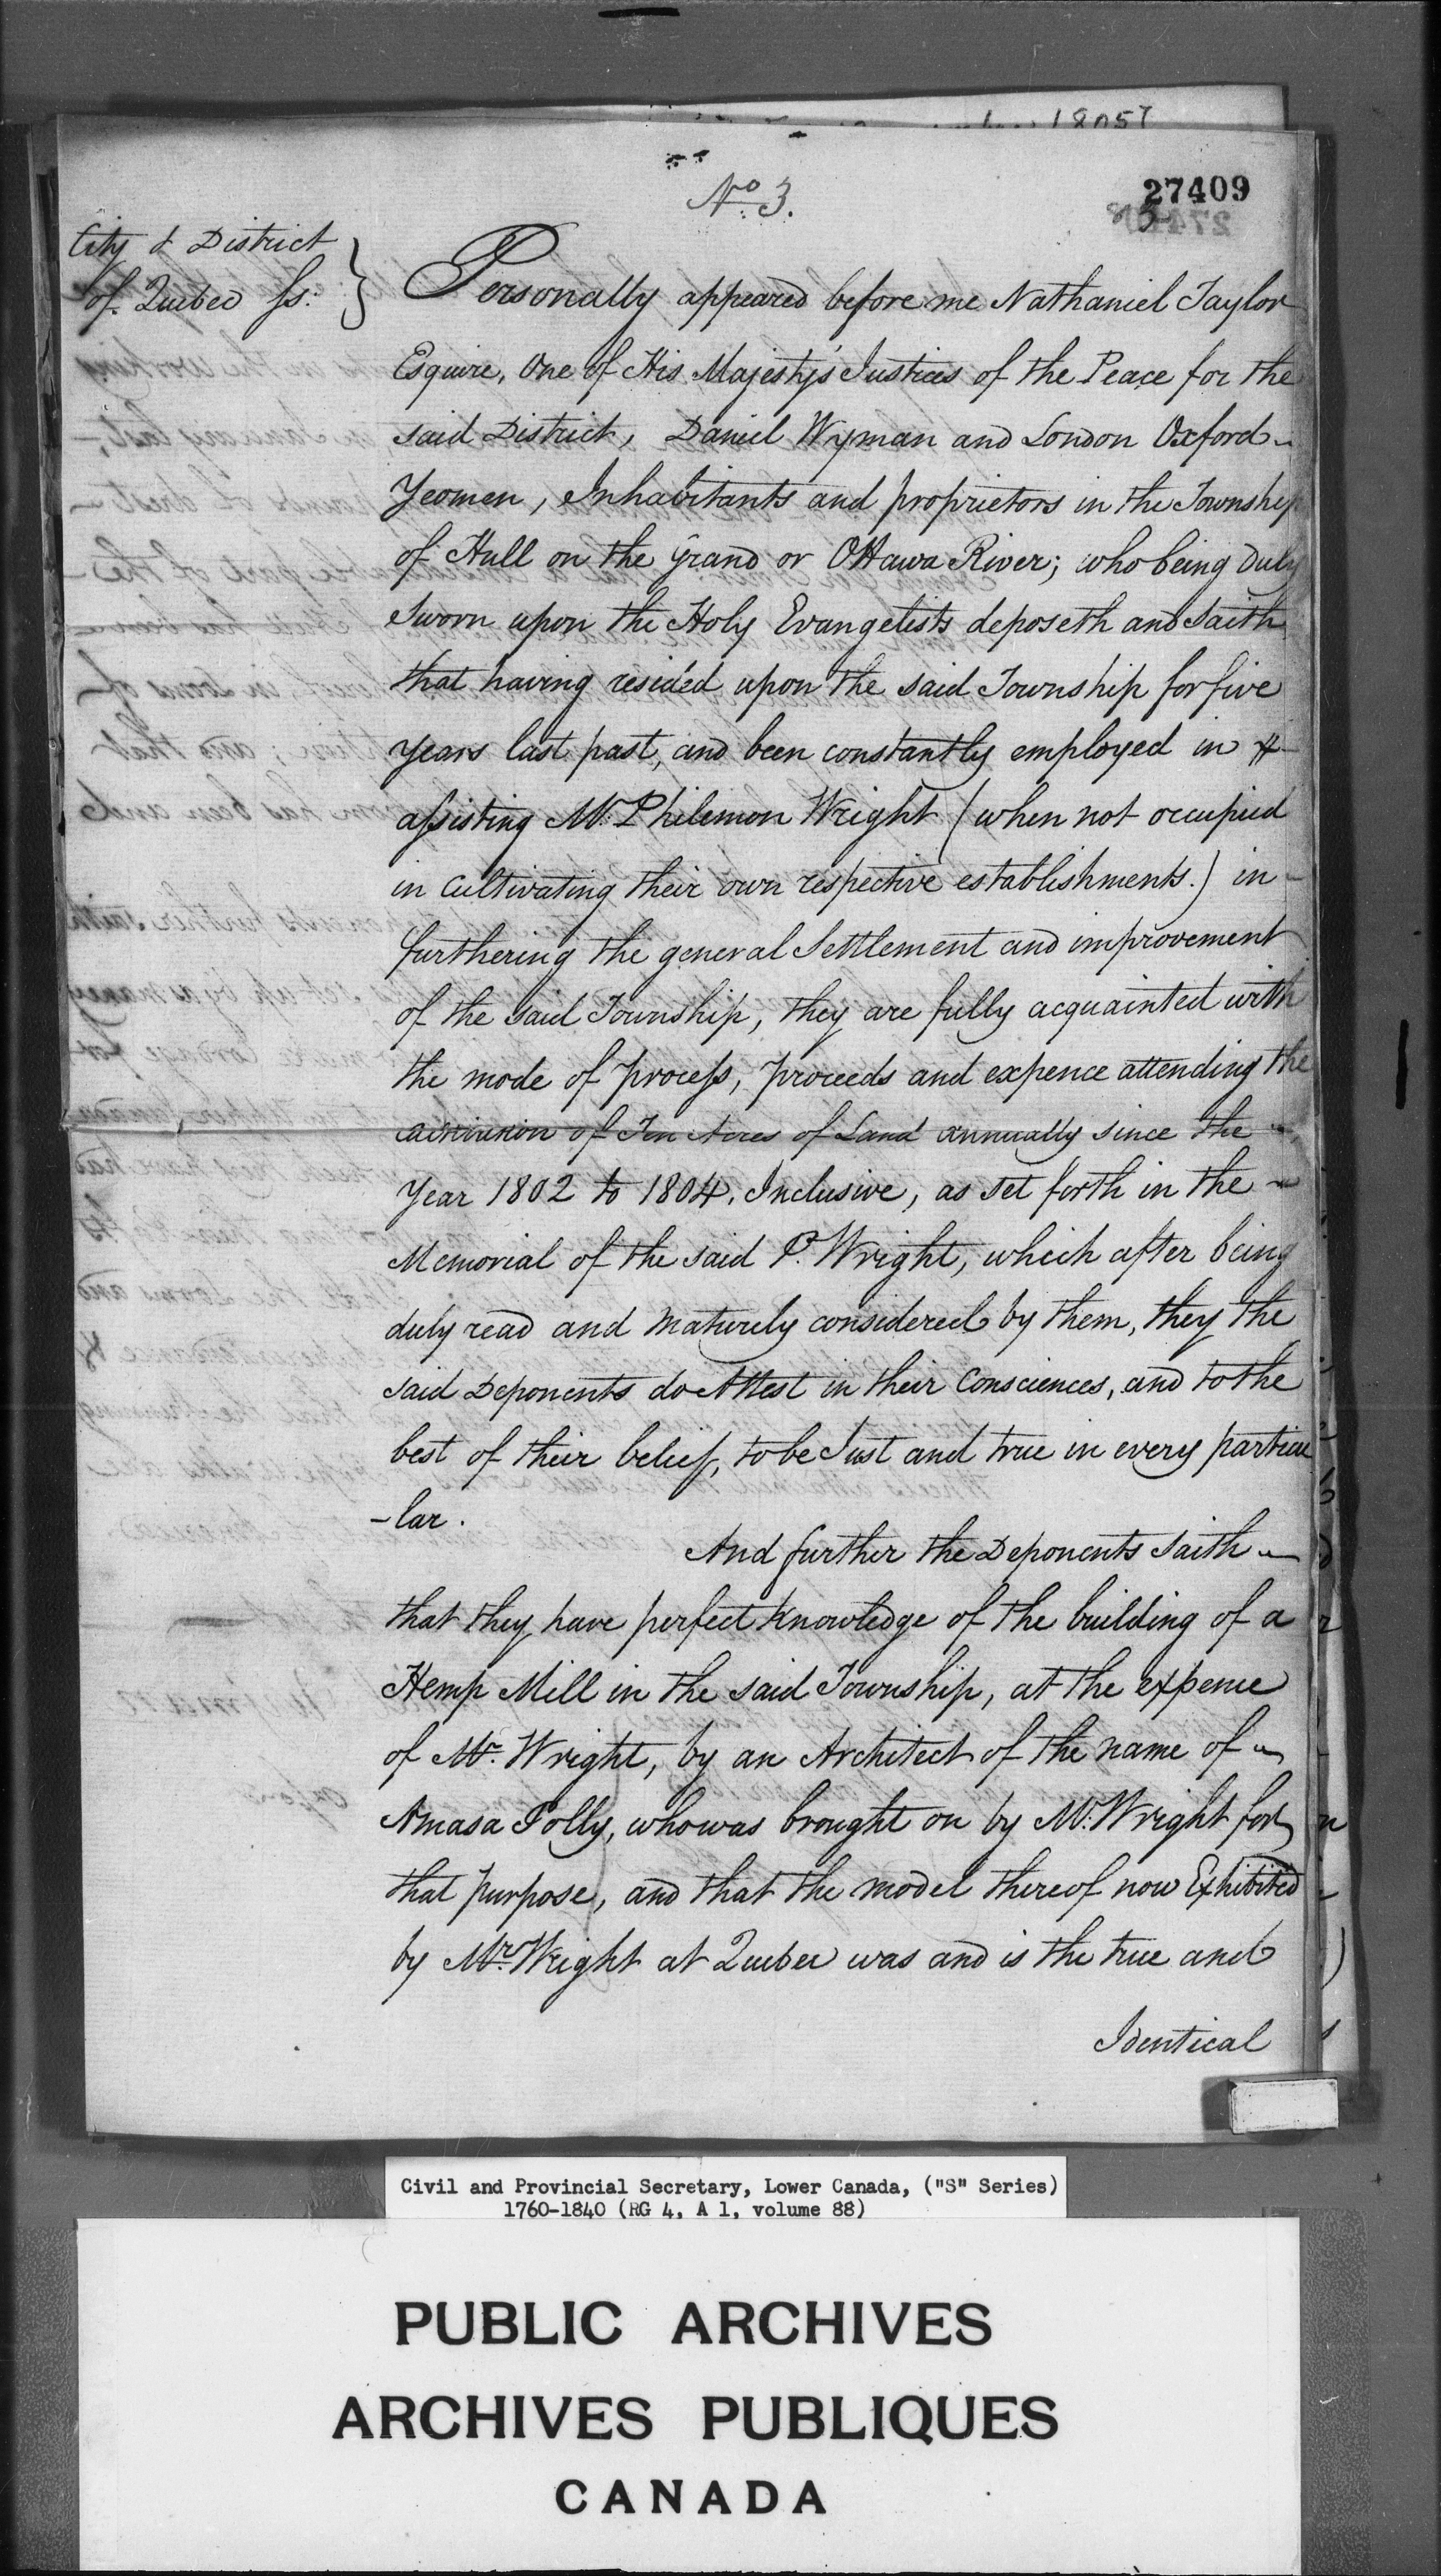 1805
No. 3.
27409
City & District
of Quebec Ss:
Personally appeared before me Nathaniel Taylor
Esquire, One of His Majesty's Justices of the Peace for the
said District, Daniel Wyman and London Oxford
Yeomen, Inhabitants and proprietors in the Township
of Hull on the Grand or Ottawa River; who being duly
Sworn upon the Holy Evangelists deposeth and Saith
that having resided upon the said Township for five
years last past, and been constantly employed in
assisting Mr. Philemon Wright (when not occupied
in cultivating their own respective establishments.) in
furthering the general Settlement and improvement
of the said Township, they are fully acquainted with
the mode of process, proceeds and expence attending the
of Ten Acres of Land annually since the
Year 1802 to 1804, Inclusive, as set forth in the
Memorial of the said P. Wright, which after being
duly read and maturely considered by them, they the
said Deponents do Attest in their Consciences, and to the
best of their belief, to be Just and true in every particu
-lar.
And further the Deponents Saith
that they have perfect knowledge of the building of a
Hemp Mill in the said Township, at the expence
of Mr. Wright, by an Architect of the name of
Amasa Polly, who was brought on by Mr. Wright for
that purpose, and that the model thereof now Exhibited
by Mr. Wright at Quebec was and is the true and
Identical
Civil and Provincial Secretary, Lower Canada, ("S" Series)
1760-1840 (RG 4, A 1, volume 88)
PUBLIC ARCHIVES
ARCHIVES PUBLIQUES
CANADA